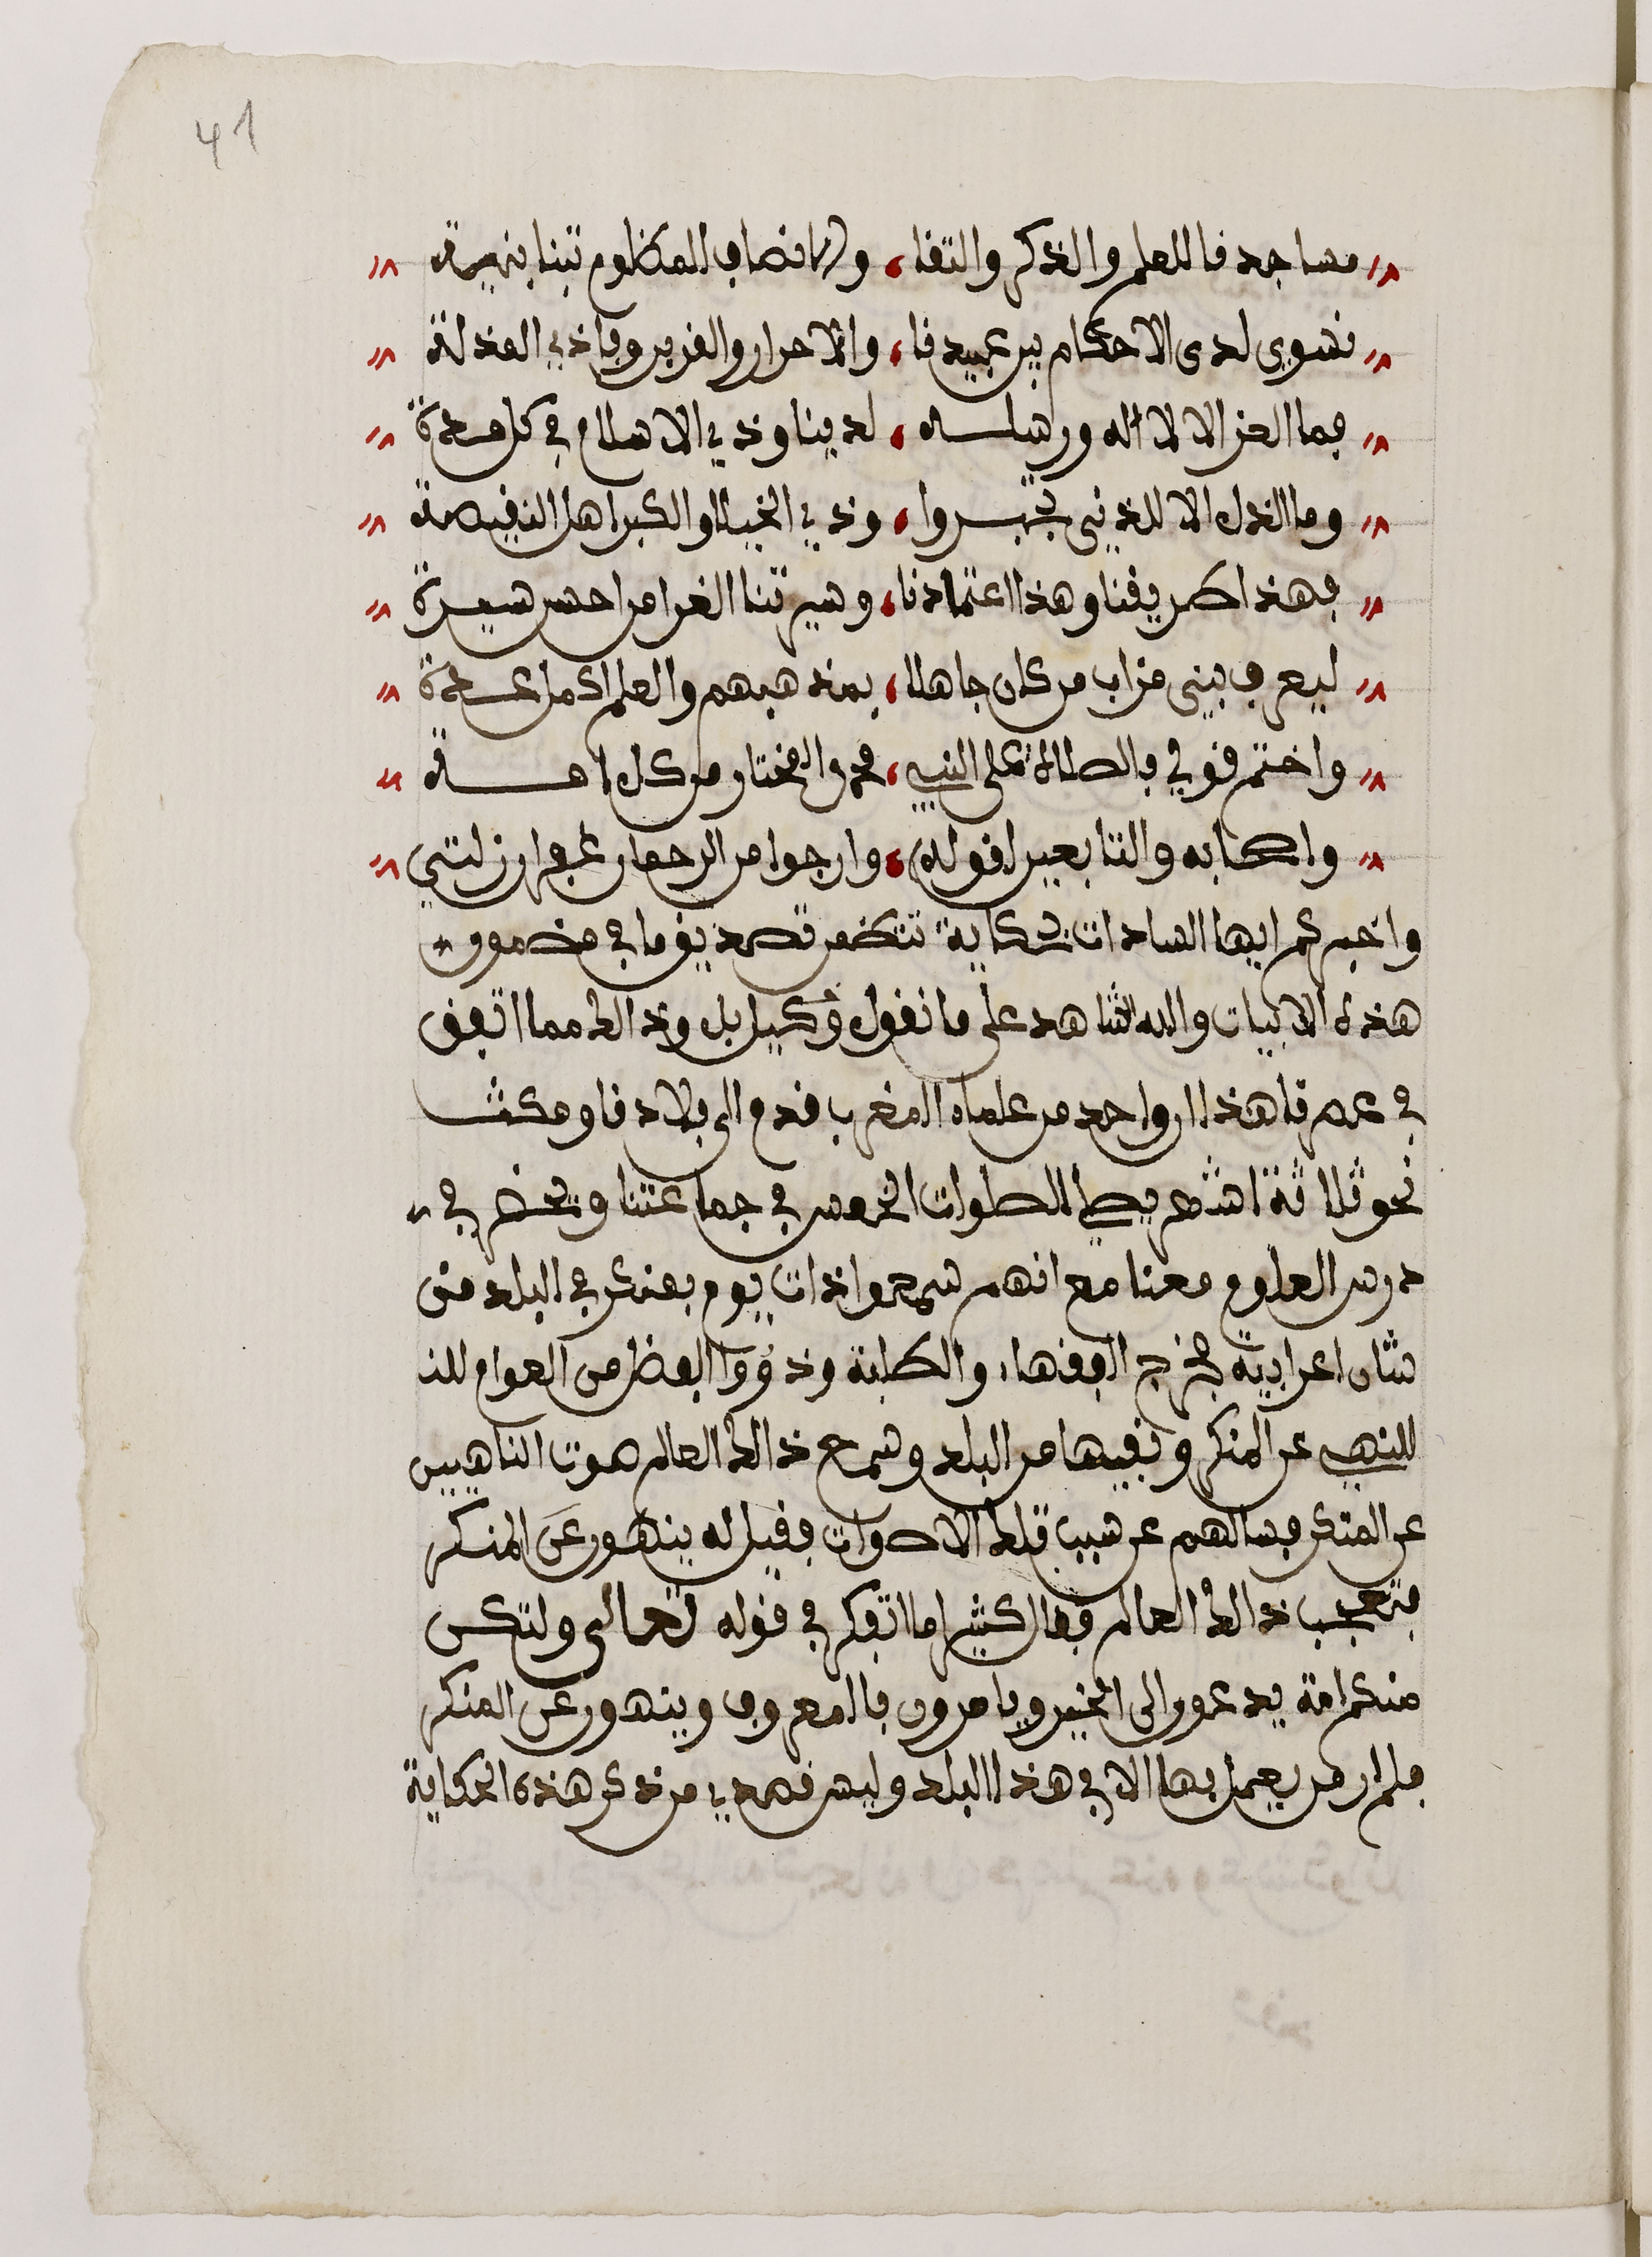 41
مساجدنا للعلم والذكر والتقا، ولانصاف المظلوم تبنا بنيرة
نسوي لدى الاحكام بين عبيدنا، والاحرار والغزير وباذي المذلة
فما العز الا لاله ورسله، لدينا وذي الاسلام في كل مدة
وما الذل الا للذين تجبروا، وذي الخيلا والكبر اهل النقيصة
فهذا طريقنا وهذا اعتمادنا، وسيرتنا الغرا من احسن سيرة
ليعرف بني مزاب من كان جاهلا، بمذهبهم والعلم اكمل عدة
واختم قولي بالصلاة على النبي، محمد المختار من كل امة
واصحابه والتابعين لقوله، وارجوا من الرحمان غفران زلتي
واخبركم ايها السادات بحكاية تتضمن تصديق ما في مضمون
هذه الابيات والله الشاهد على ما نقول وكيل بل وذالك مما اتفق
في عصرنا هذا ان واحد من علماء المغرب قدم الى بلادنا ومكث
نحو ثلاثة اشهر يصلي الصلوات الخمس في جماعتنا ويحضر في
درس العلوم معنا مع انهم سمعوا ذات يوم بمنكر في البلد من
شان اعرابية فخرج الفقهاء والطلبة وذووا الفضل من العوام للذ
للنهي عن المنكر ونفيها من البلد وسمع ذالك العالم صوت الناهيين
عن المنكر فسالهم عن سبب تلك الاصوات فقيل له ينهون عن المنكر
فتعجب ذالك العالم فقال كثيرا ما اتفكر في قوله تعالى ولتكن
منكم امة يدعون الى الخير ويامرون بالمعروف وينهون عن المنكر
فلم ار من يعمل بها الا في هذا البلد وليس قصدي من ذكر هذه الحكاية